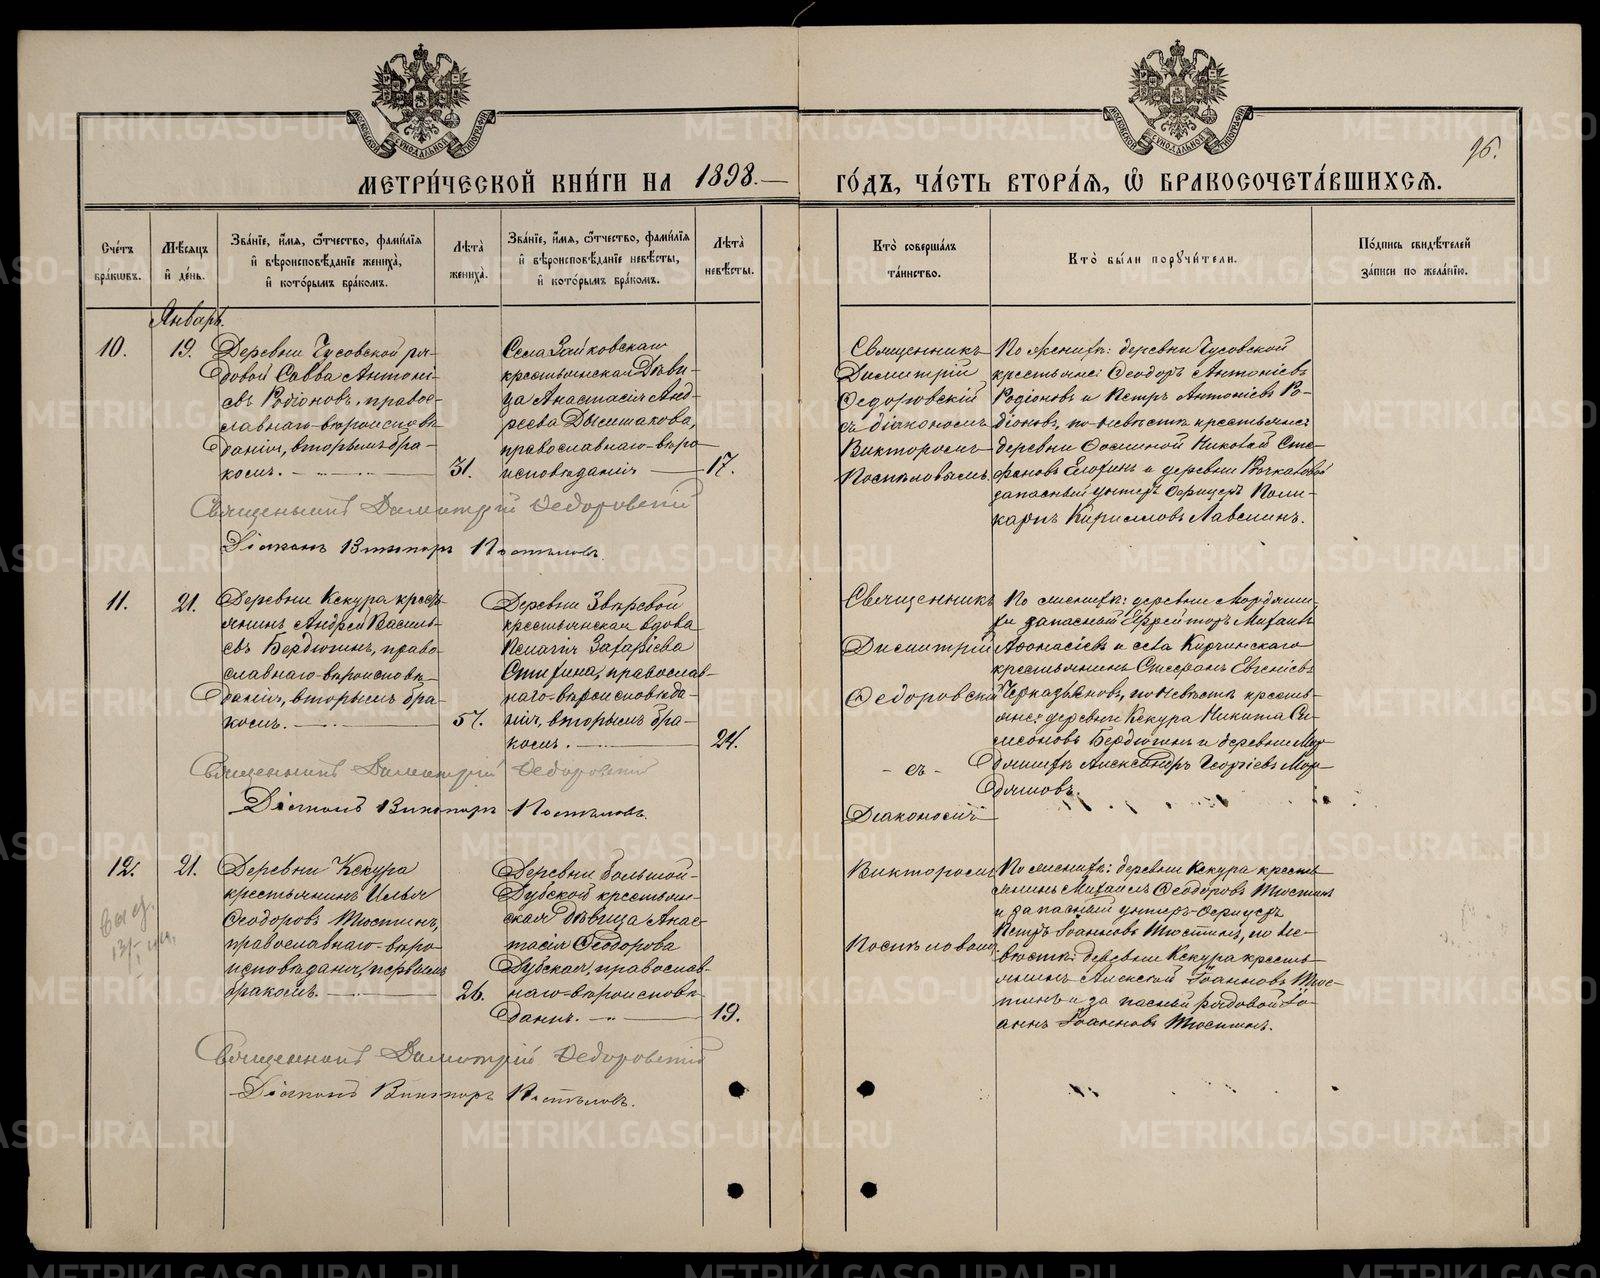 МЕТРИ́ЧЕСКОЙ КНИ́ГИ НА 1898.— ГО́ДЪ, ЧА́СТЬ ВТОРА́Я, Ѡ БРАКОСОЧЕТА́ВШИХСЯ.
96.
Сче́тъ бра́кωвъ.
Мѣ́сяцъ и́ де́нь.
Зва́нїе, и́мя, ѻ́тчество, фами́лїя и́ вѣроисповѣ́данїе жениха̀, и́ кото́рымъ бра́комъ.
Лѣта̀ жениха̀.
Зва́нїе, и́мя, ѻ́тчество, фами́лїя и́ вѣроисповѣ́данїе невѣ́сты, и́ кото́рымъ бра́комъ.
Лѣта̀ невѣ́сты.
Кто̀ соверша́лъ та́инство.
Кто̀ бы́ли порꙋчи́тели.
По́дпись свидѣ́телей за́писи по жела́нїю.
Январь.
10.
19.
Деревни Чусовской ря-
довой Савва Антоні-
евъ Родіоновъ, право-
славнаго вѣроисповѣ-
данія, вторымъ бра-
комъ.
31.
Села Зайковскаго
крестьянская дѣви-
ца Анастасія Анд-
реева
православнаго вѣро
исповѣданія
17.
Священникъ
Димитрій
Федоровскій
съ діакономъ
Викторомъ
Постниковымъ
По женихѣ: деревни Чусовской
крестьяне: Ѳеодоръ Антоніевъ
Родіоновъ и Петръ Антоніевъ Ро-
діоновъ, по невѣстѣ крестьяне:
деревни Ѳоминой Николай Сте-
фановъ и деревни
запасный унтеръ офицеръ Поли-
карпъ Кирилловъ
Священникъ Димитрій Федоровскій
Діаконъ Викторъ
11.
21.
Деревни Кекура кресть-
янинъ Андрей Василь-
евъ Бердюгинъ, право
славнаго вѣроисповѣ-
данія, вторымъ бра-
комъ.
57.
Деревни Звѣревой
крестьянская вдова
Пелагія Захаріева
православ-
наго вѣроисповѣда-
нія, вторымъ бра-
комъ.
24.
Священникъ
Димитрій
Федоровскій
- съ -
Діакономъ
По женихѣ: деревни
запасный Ефрейторъ Михаилъ
Аѳонасіевъ и села Киргинскаго
крестьянинъ Стефанъ Евгеніевъ
по невѣстѣ кресть-
яне: деревни Кекура Никита Си-
меоновъ Бердюгинъ и деревни Мор-
Александръ Георгіевъ Мор-
Священникъ Димитрій Федоровскій
Діаконъ Викторъ
12.
21.
Деревни Кекура
крестьянинъ Илья
Ѳеодоровъ Тюстинъ,
православнаго вѣро
исповѣданія, первымъ
бракомъ.
26.
Деревни Большой-
Дубской крестьян-
ская дѣвица Анас-
тасія Ѳеодорова
Дубская, православ-
наго вѣроисповѣ-
данія.
19.
Викторомъ
По женихѣ: деревни Кекура кресть-
янинъ Михаилъ Ѳеодоровъ Тюстинъ
и запасный унтеръ-офицеръ
Петръ Іоанновъ Тюстинъ, по не-
вѣстѣ: деревни Кекура кресть-
янинъ Алексѣй Іоанновъ Тюс-
тинъ и запасный рядовой Іо-
аннъ Іоанновъ Тюстинъ.
Священникъ Димитрій Федоровскій
Діаконъ Викторъ
METRIKI.GASO-URAL.RU